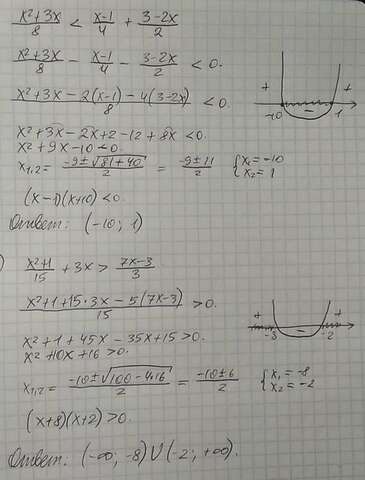 (x²+3x)/8 < (x-1)/4 + (3-2x)/2
(x²+3x)/8 - (x-1)/4 - (3-2x)/2 < 0.
(x²+3x-2(x-1)-4(3-2x))/8 < 0.
x²+3x-2x+2-12+8x<0.
x²+9x-10<0.
x₁,₂ = (-9±√(81+40))/2 = (-9±11)/2 { x₁=-10 x₂=1
(x-1)(x+10)<0.
Ответ: (-10; 1)
+ -10 - 1 +
) (x²+1)/15 + 3x > (7x-3)/3
(x²+1+15·3x-5(7x-3))/15 > 0.
x²+1+45x-35x+15>0.
x²+10x+16>0.
x₁,₂ = (-10±√(100-4·16))/2 = (-10±6)/2 { x₁=-8 x₂=-2
(x+8)(x+2)>0.
Ответ: (-∞; -8)∪(-2; +∞).
+ -8 - -2 +